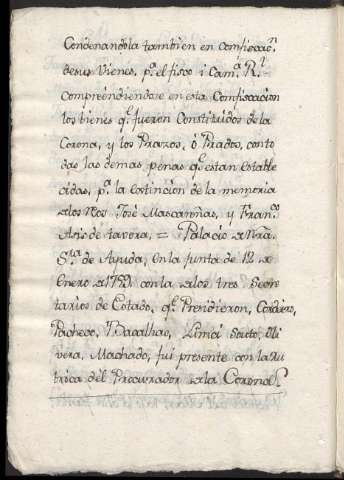 Condenandola tambien en confiscacⁿ
de sus Vienes, pª el fisco i Camª Rˡ
compreéndiendose en esta Confiscacion
los bienes qᵉ fueron Constituidos de la
Corona, y los Prazos, ó Prados, con to
das las demas, penas qᵉ estan Estable
cidas, pª la Estincion de la memoria
de los Rˢ José Mascareñas, y Franᶜᵒ
Asis de tavora, = Palacio de Nrâ
Sʳᵃ de Ayuda, en la junta de 12 de
Enero de 1759 con la de los tres Secre
tarios de Estado, qᵉ Presidieron, Cordero,
Pacheco, Bacalhao, Lima, Souto, Oli
vera, Machado, fui presente con la Ru
brica del Procurador de la Corona